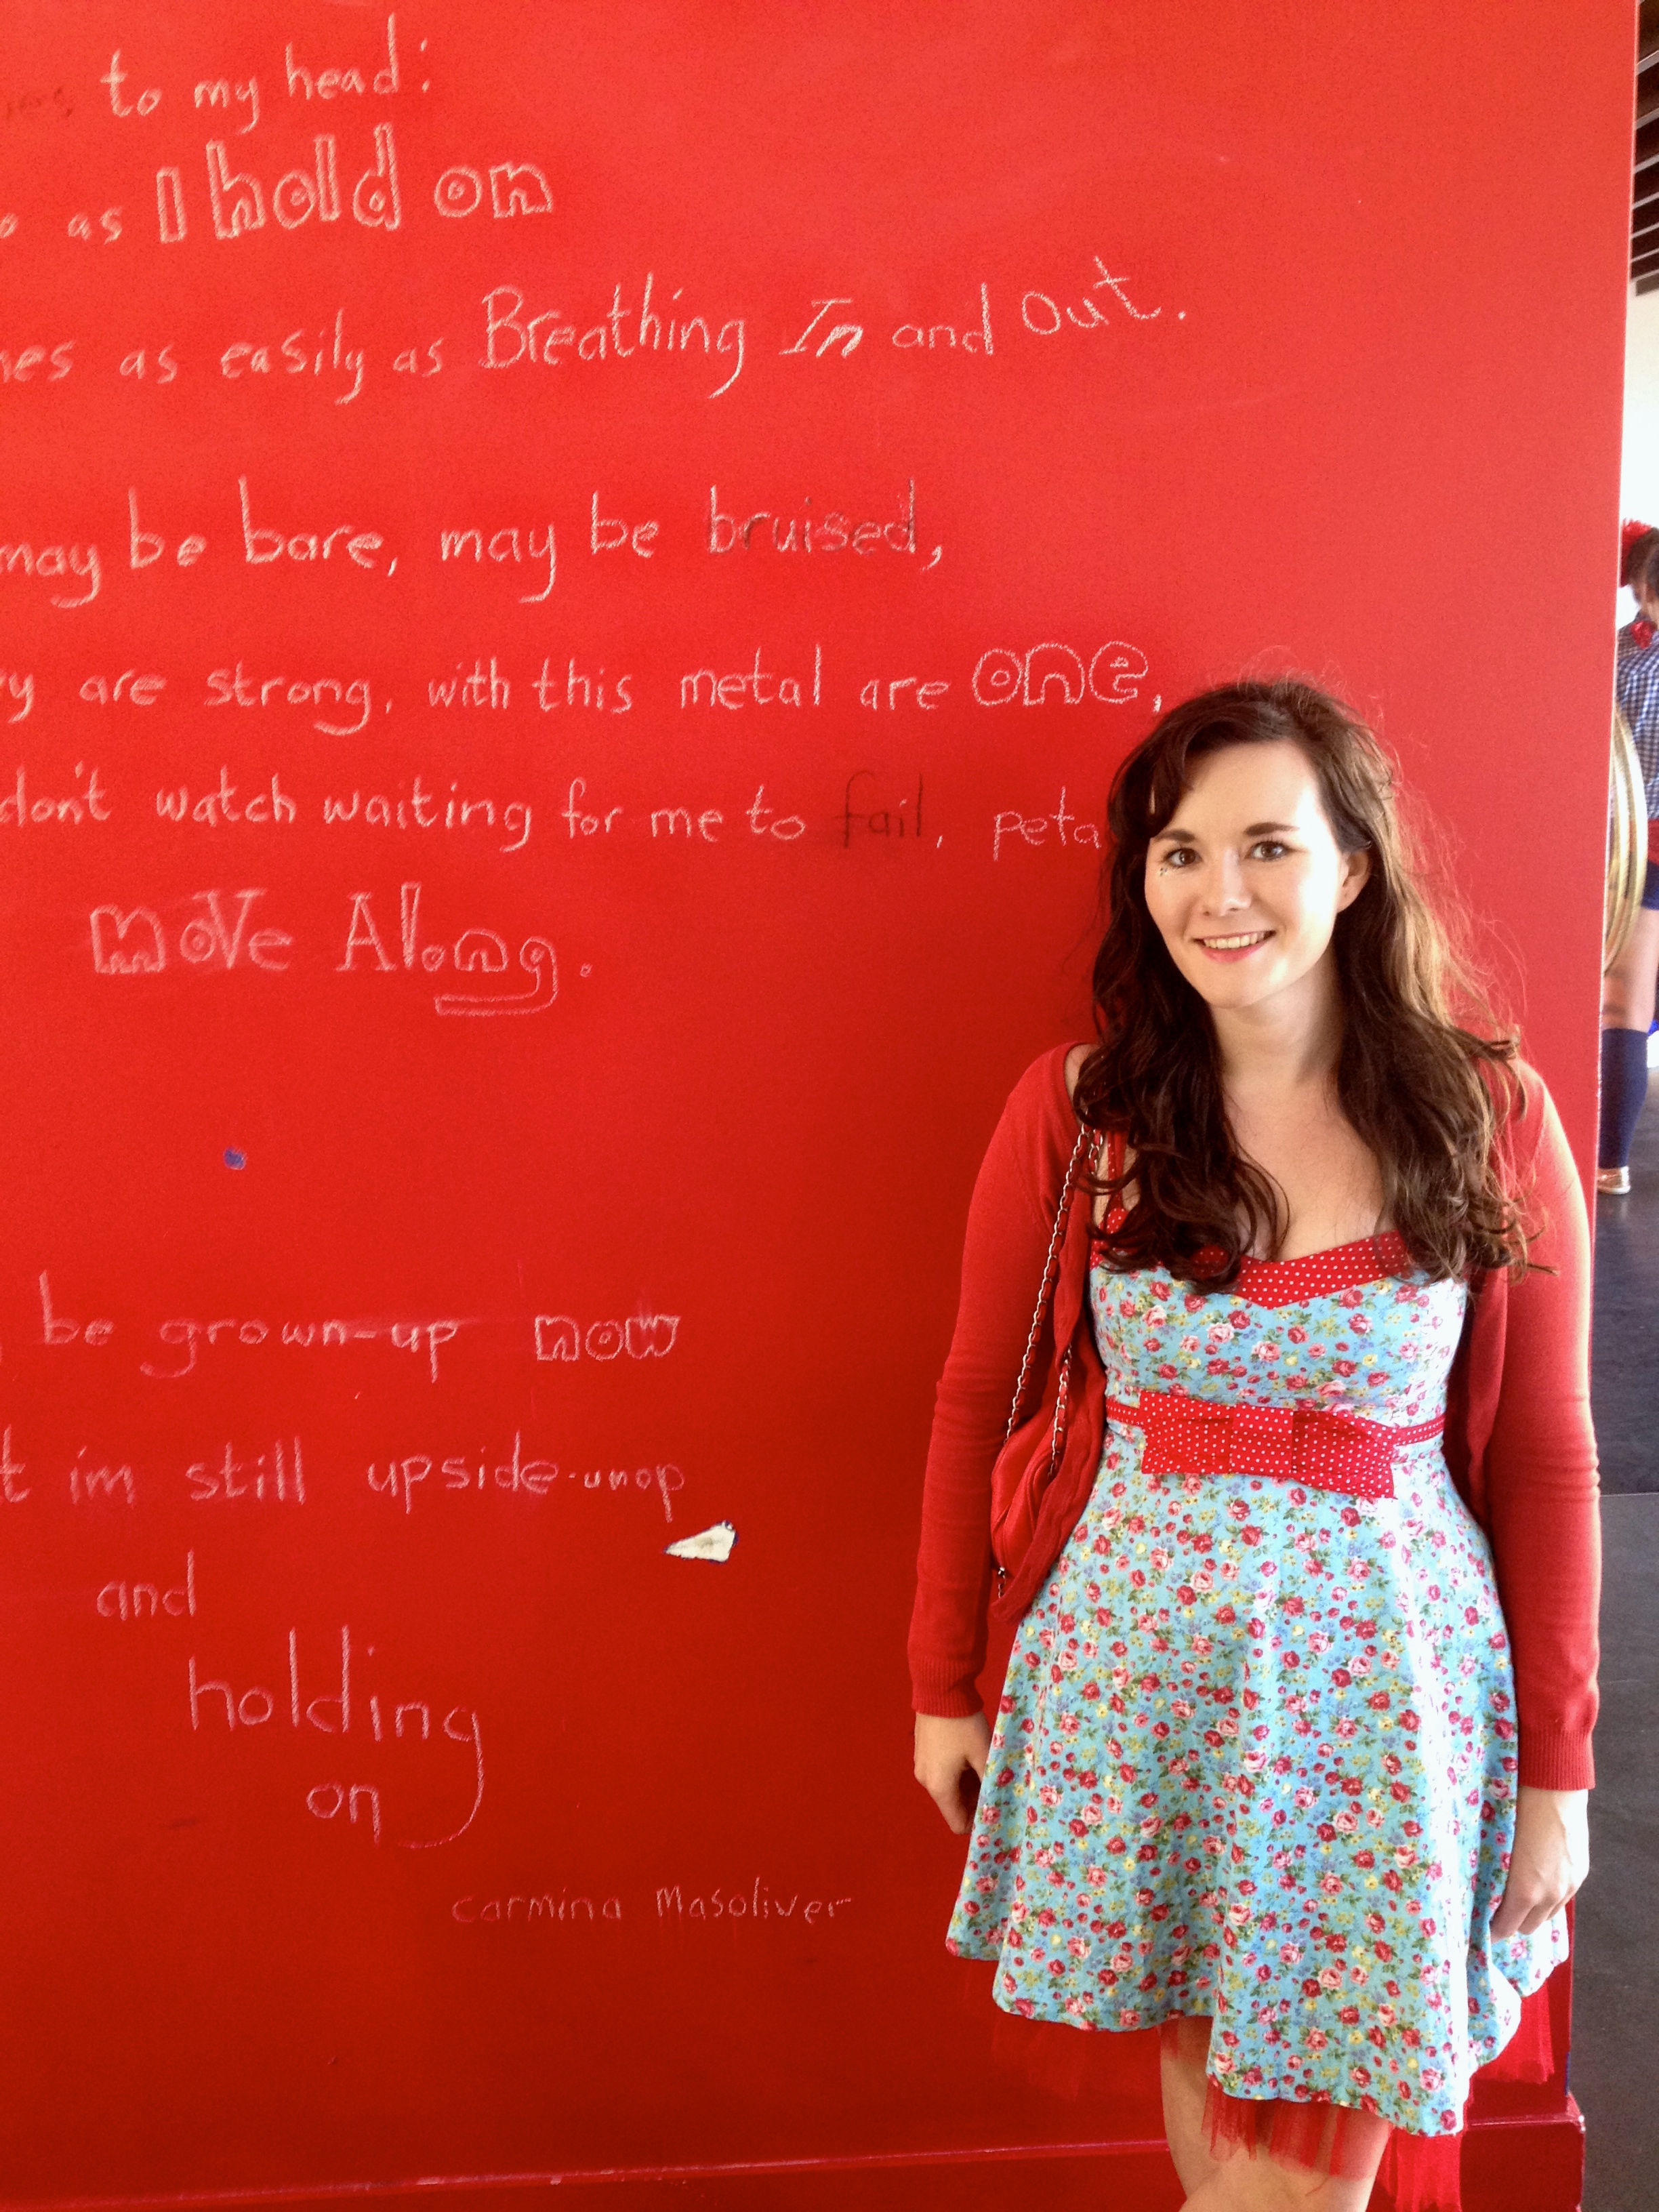 to my head:
as I hold on
as easily as Breathing In and Out.
may be bare, may be bruised,
are strong, with this metal are one,
don't watch waiting for me to fail, peta
move Along.
be grown-up now
im still upside-
and
holding
on
Carmina Masoliver